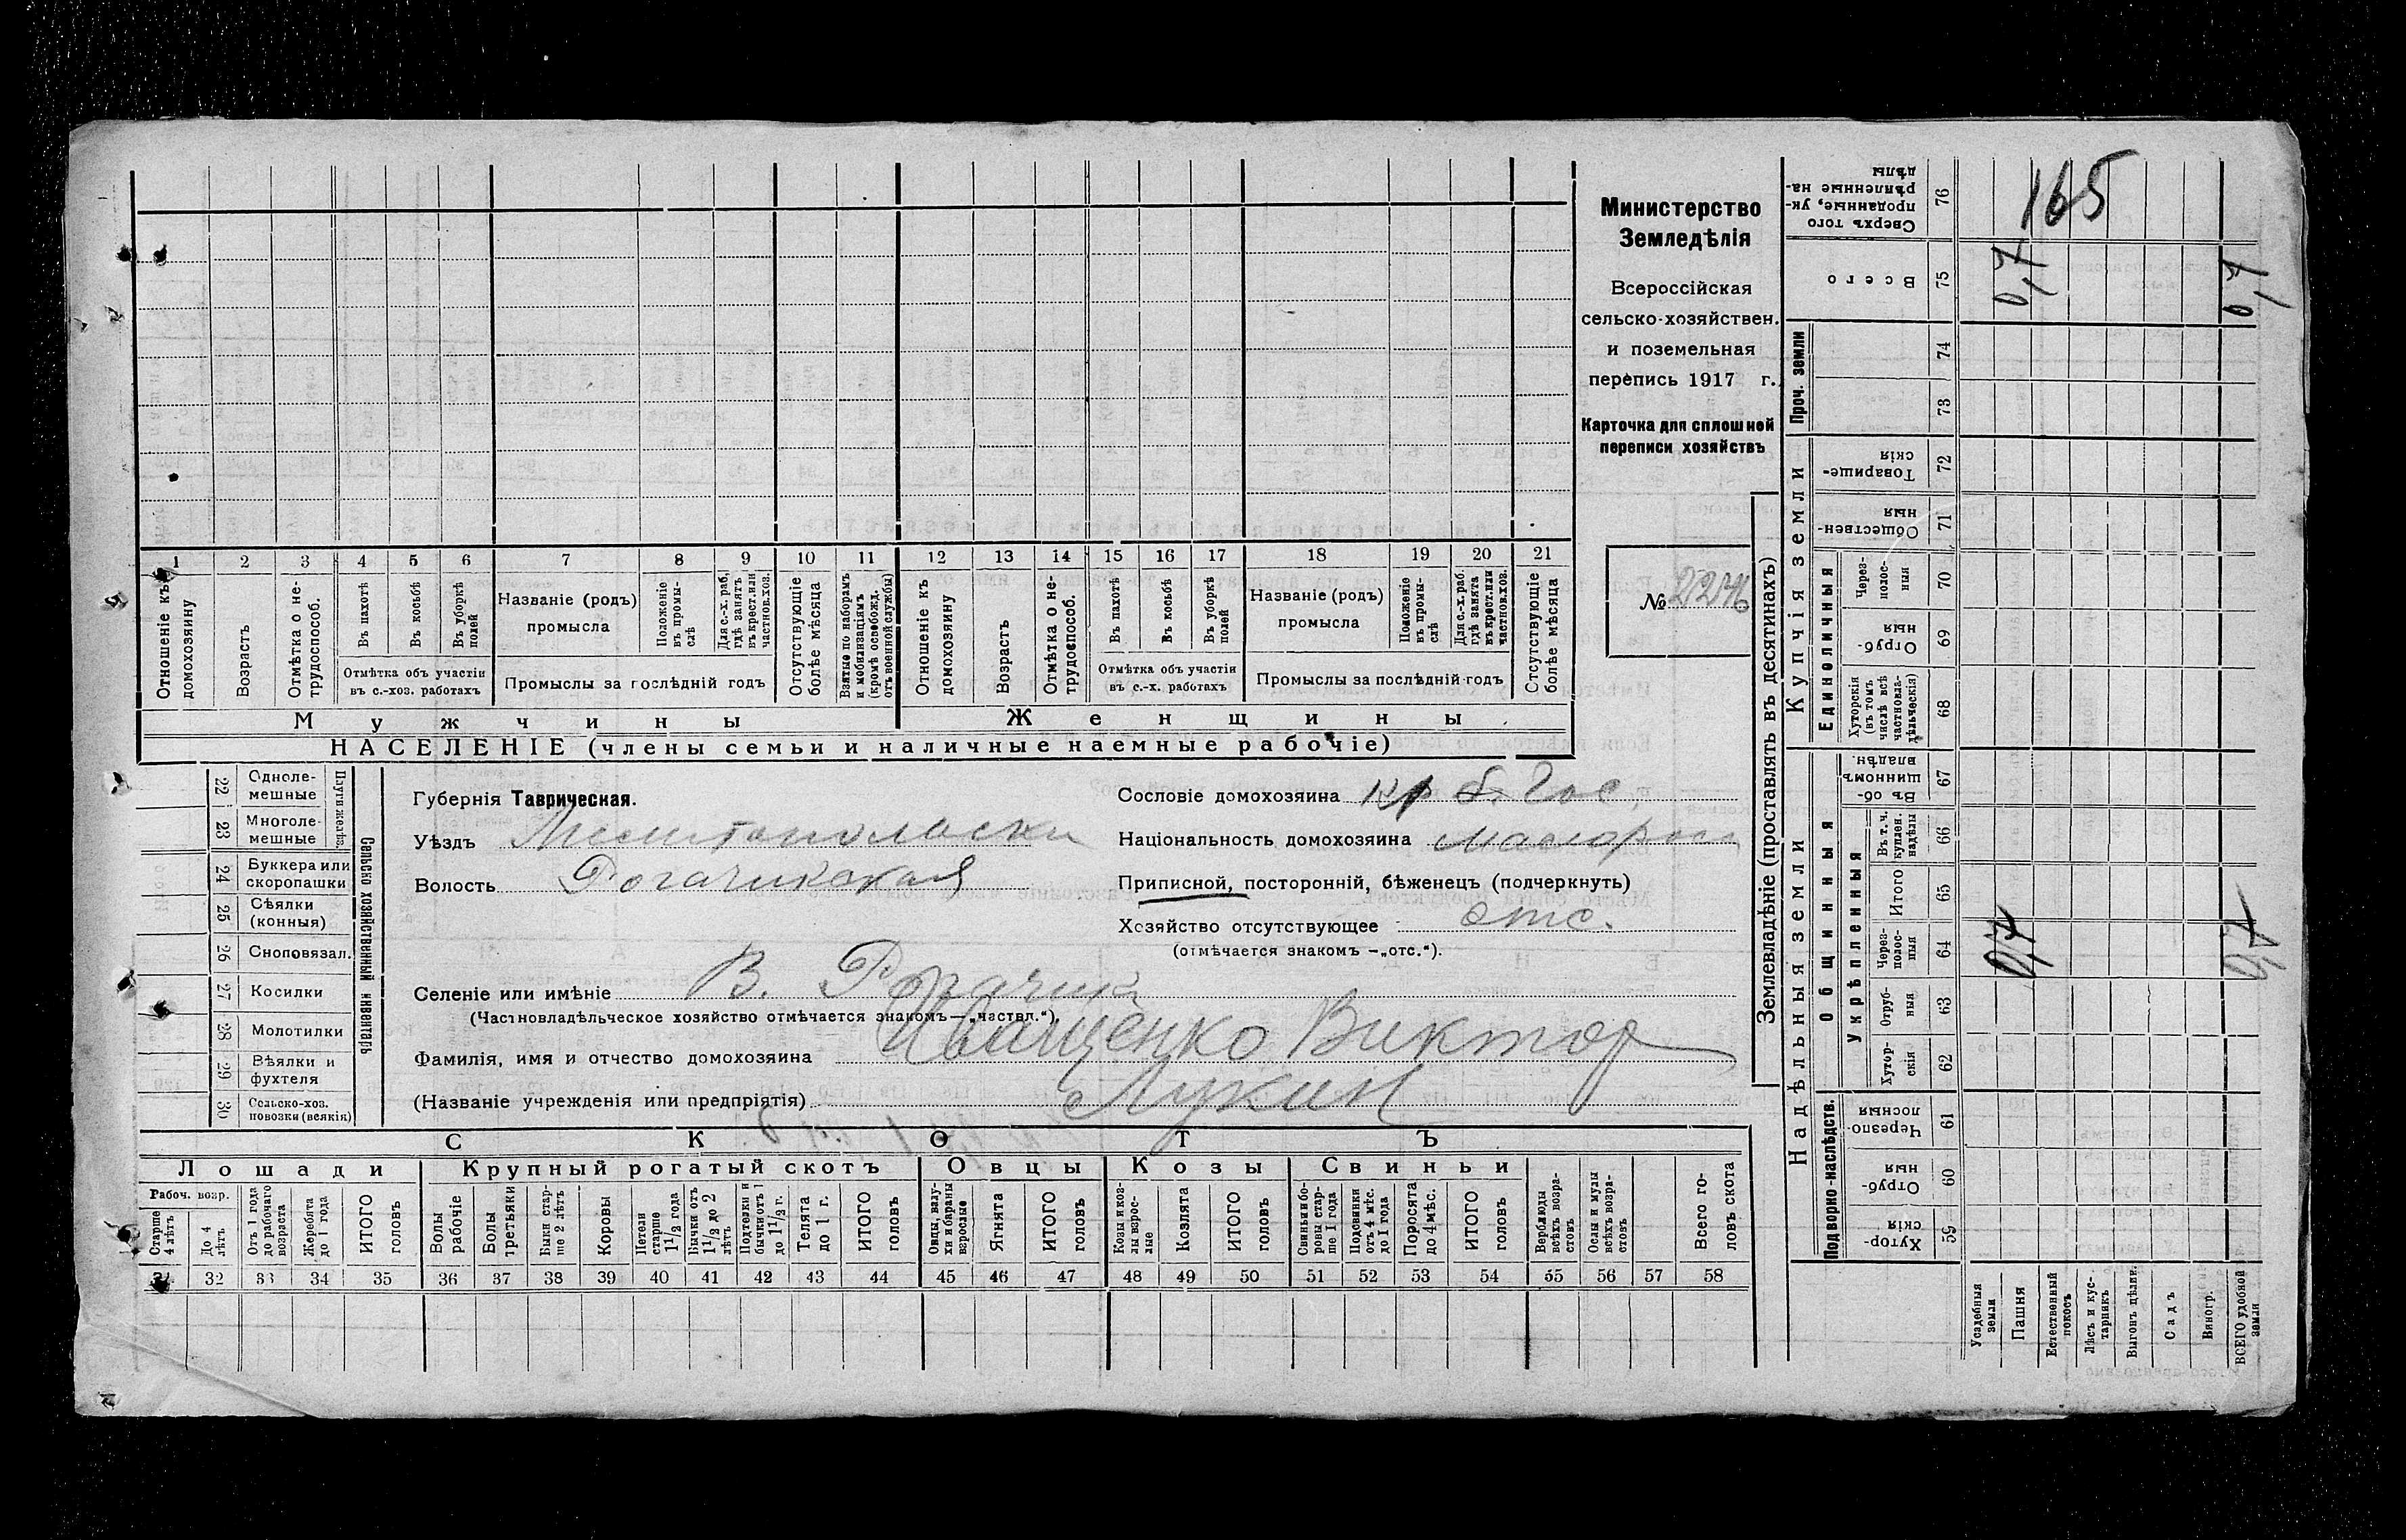 1 2 3 4 5 6 7 8 9 10 11 12 13 14 15 16 17 18 19 20 21
Отношеніе къ домохозяину
Возрастъ
Отмѣтка о не-трудоспособ.
Въ пахотѣ
Въ косьбѣ
Въ уборкѣ полей
Отмѣтка объ участіи
въ с.-хоз. работахъ
Названіе (родъ)
промысла
Положеніе въ промы-слѣ
Для с.-х. раб, гдѣ занятъ въ крест. или частнов. хоз.
Промыслы за послѣдній годъ
Отсутствующіе болѣе мѣсяца
Взятые по наборамъ и мобилизаціямъ (кромѣ освобожд. отъ военной службы)
Отношеніе къ домохозяину
Возрастъ
Отмѣтка о не-трудоспособ.
Въ пахотѣ
Въ косьбѣ
Въ уборкѣ полей
Отмѣтка объ участіи
въ с.-х. работахъ
Названіе (родъ)
промысла
Положеніе въ промы-слѣ
Для с.-х. раб. гдѣ занята въ крест. или частнов. хоз.
Промыслы за послѣдній годъ
Отсутствующіе болѣе мѣсяца
Мужчины
Женщины
НАСЕЛЕНІЕ (члены семьи и наличные наемные рабочіе)
Министерство
Земледѣлія
Всероссійская
сельско-хозяйствен.
и поземельная
перепись 1917 г.
Карточка для сплошной
переписи хозяйствъ
№ 2246
22 Одноле-мешные
23 Многоле-мешные
Плуги желѣз.
24 Буккера или скоропашки
25 Сѣялки (конныя)
26 Сноповязал.
27 Косилки
28 Молотилки
29 Вѣялки и фухтеля
30 Сельско-хоз. повозки (всякія)
Сельско хозяйственный инвентарь
Губернія Таврическая.
Уѣздъ Мелитопольски
Волость Рогачикская
Селеніе или имѣніе В. Рогачик
(Частновладѣльческое хозяйство отмѣчается знакомъ—„частвл.“)
Фамилія, имя и отчество домохозяина Иващенко Виктор
(Названіе учрежденія или предпріятія) Лукин
Сословіе домохозяина кр б. Гос.
Національность домохозяина малорос
Приписной, посторонній, бѣженецъ (подчеркнуть)
Хозяйство отсутствующее отс.
(отмѣчается знакомъ —„отс.“).
СКОТЪ
Лошади
Крупный рогатый скотъ
Овцы
Козы
Свиньи
Рабоч. возр.
Старше 4 лѣтъ
До 4 лѣтъ
Отъ 1 года до рабочаго возраста
Жеребята до 1 года
ИТОГО головъ
Волы рабочіе
Волы третьяки
Быки стар-ше 2 лѣтъ
Коровы
Нетели старше 1½ года
Бычки отъ 1½ до 2 лѣтъ
Подтелки и бычки отъ 1 до 1½ г.
Телята до 1 г.
ИТОГО головъ
Овцы, валу-хи и бараны взрослые
Ягнята
ИТОГО головъ
Козы и коз-лы взрос-лые
Козлята
ИТОГО головъ
Свиньи и бо-ровы стар-ше 1 года
Подсвинки отъ 4 мѣс. до 1 года
Поросята до 4 мѣс.
ИТОГО головъ
Верблюды всѣхъ возра-стовъ
Ослы и мулы всѣхъ возра-стовъ
Всего го-ловъ скота
31 32 33 34 35 36 37 38 39 40 41 42 43 44 45 46 47 48 49 50 51 52 53 54 55 56 57 58
Землевладѣніе (проставлять въ десятинахъ)
Надѣльныя земли
Купчія земли
Проч. земли
Подворно-наслѣдств.
Общинныя
Укрѣпленныя
Единоличныя
Сверхъ того проданные, ук-рѣпленные на-дѣлы 76 165
Всего 75 0,7 0,7
74
73
Товарище-скія 72
Обществен-ныя 71
Через-полос-ныя 70
Отруб-ныя 69
Хуторскія (въ томъ числѣ всѣ частновла-дѣльческія) 68
Въ об-щинномъ владѣн. 67
Въ т. ч. куплен. надѣлы 66
Итого 65
Через-полос-ныя 64 0,7 0,7
Отруб-ныя 63
Хутор-скія 62
Черезпо-лосныя 61
Отруб-ныя 60
Хутор-скія 59
Усадебныя земли
Пашня
Естественный покосъ
Лѣсъ и кус-тарникъ
Выгонъ цѣлин.
Садъ
Виногр.
ВСЕГО удобной земли